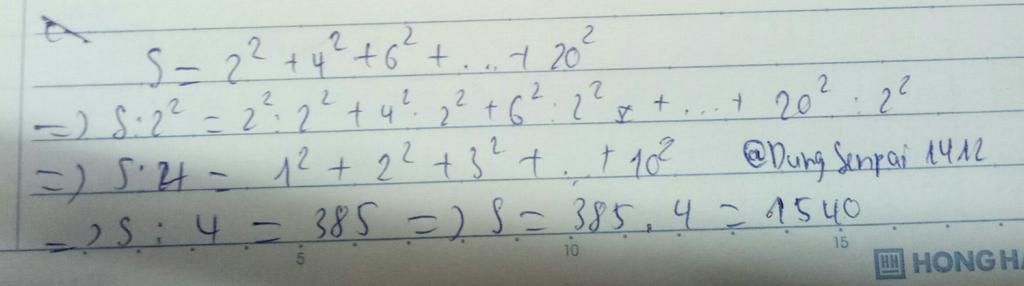 S = 2² + 4² + 6² + ... + 20²
=> S : 2² = 2² : 2² + 4² : 2² + 6² : 2² + ... + 20² : 2²
=> S : 4 = 1² + 2² + 3² + ... + 10² @DungSenpai1412
=> S : 4 = 385 => S = 385 . 4 = 1540
5 10 15
HH HONG HA